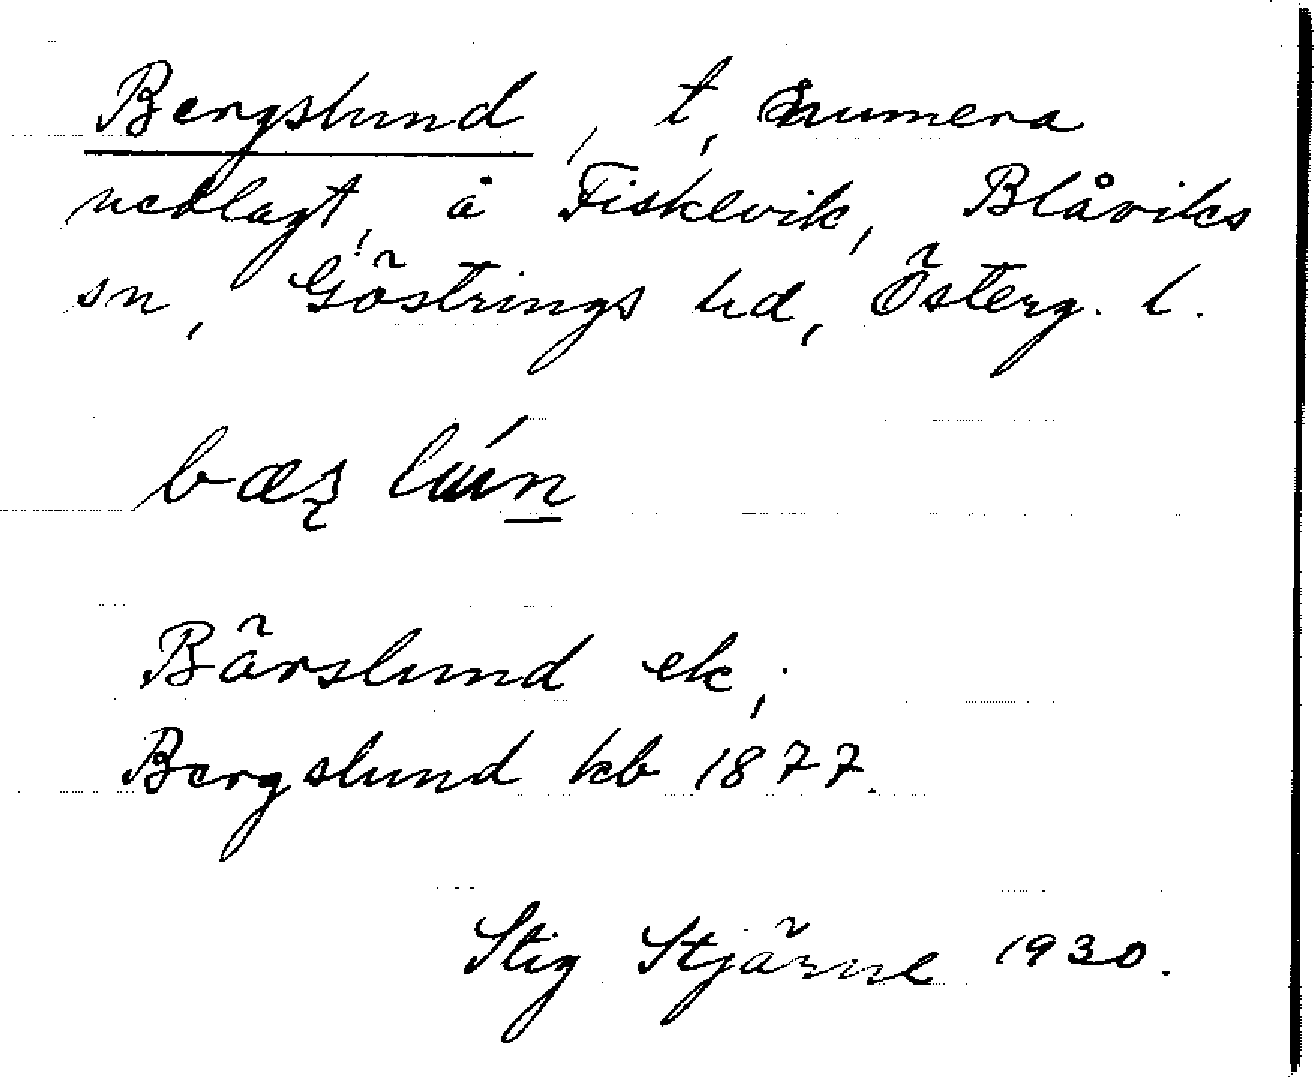 Bergslund, t, numera
nedlagt, å Fiskevik, Blåviks
sn, Göstrings hd, Österg. l.
Bärslund ek,
Bergslund kb 1877.
Stig Stjärne 1930.